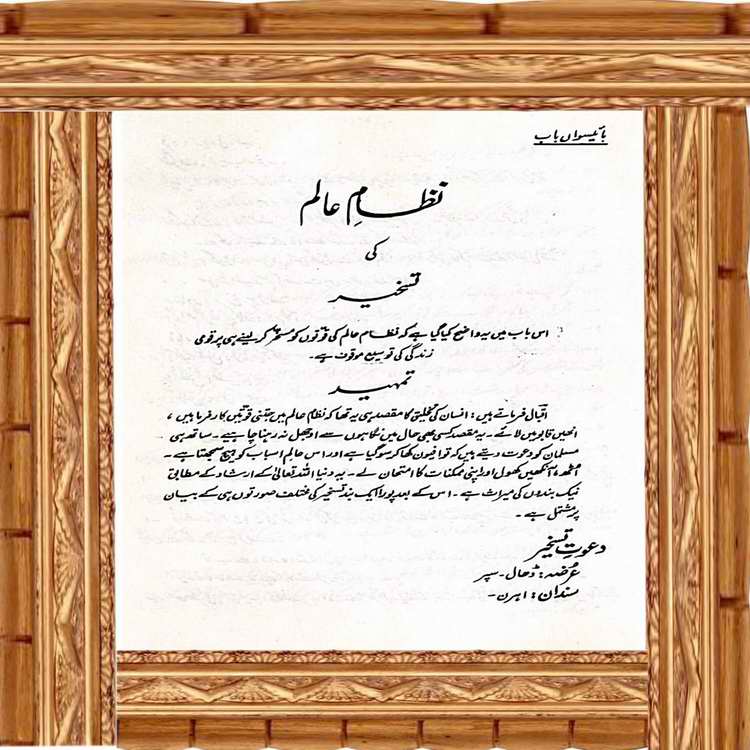 بائیسواں باب
نظامِ عالم
کی
تسخیر
اس باب میں یہ واضح کیا گیا ہے کہ نظام عالم کی قوتوں کو مسخر کر لینے ہی پر قومی
زندگی کی توسیع موقوف ہے۔
تمہید
اقبال فرماتے ہیں: انسان کی تخلیق کا مقصد ہی یہ تھا کہ نظام عالم میں جتنی قوتیں کارفرما ہیں،
انھیں قابو میں لائے۔ یہ مقصد کسی بھی حال میں نگاہوں سے اوجھل نہ رہنا چاہیے۔ ساتھ ہی
مسلمان کو دعوت دیتے ہیں کہ تو افیون کھا کر سو گیا ہے اور اس عالم اسباب کو ہیچ سمجھتا ہے۔
اُٹھ، آنکھیں کھول اور اپنی ممکنات کا امتحان لے۔ یہ دنیا اللہ تعالیٰ کے ارشاد کے مطابق
نیک بندوں کی میراث ہے۔ اس کے بعد پورا ایک بند تسخیر کی مختلف صورتوں ہی کے بیان
پر مشتمل ہے۔
دعوتِ تسخیر
عُرضہ: ڈھال۔ سپر
سندان: اہرن۔